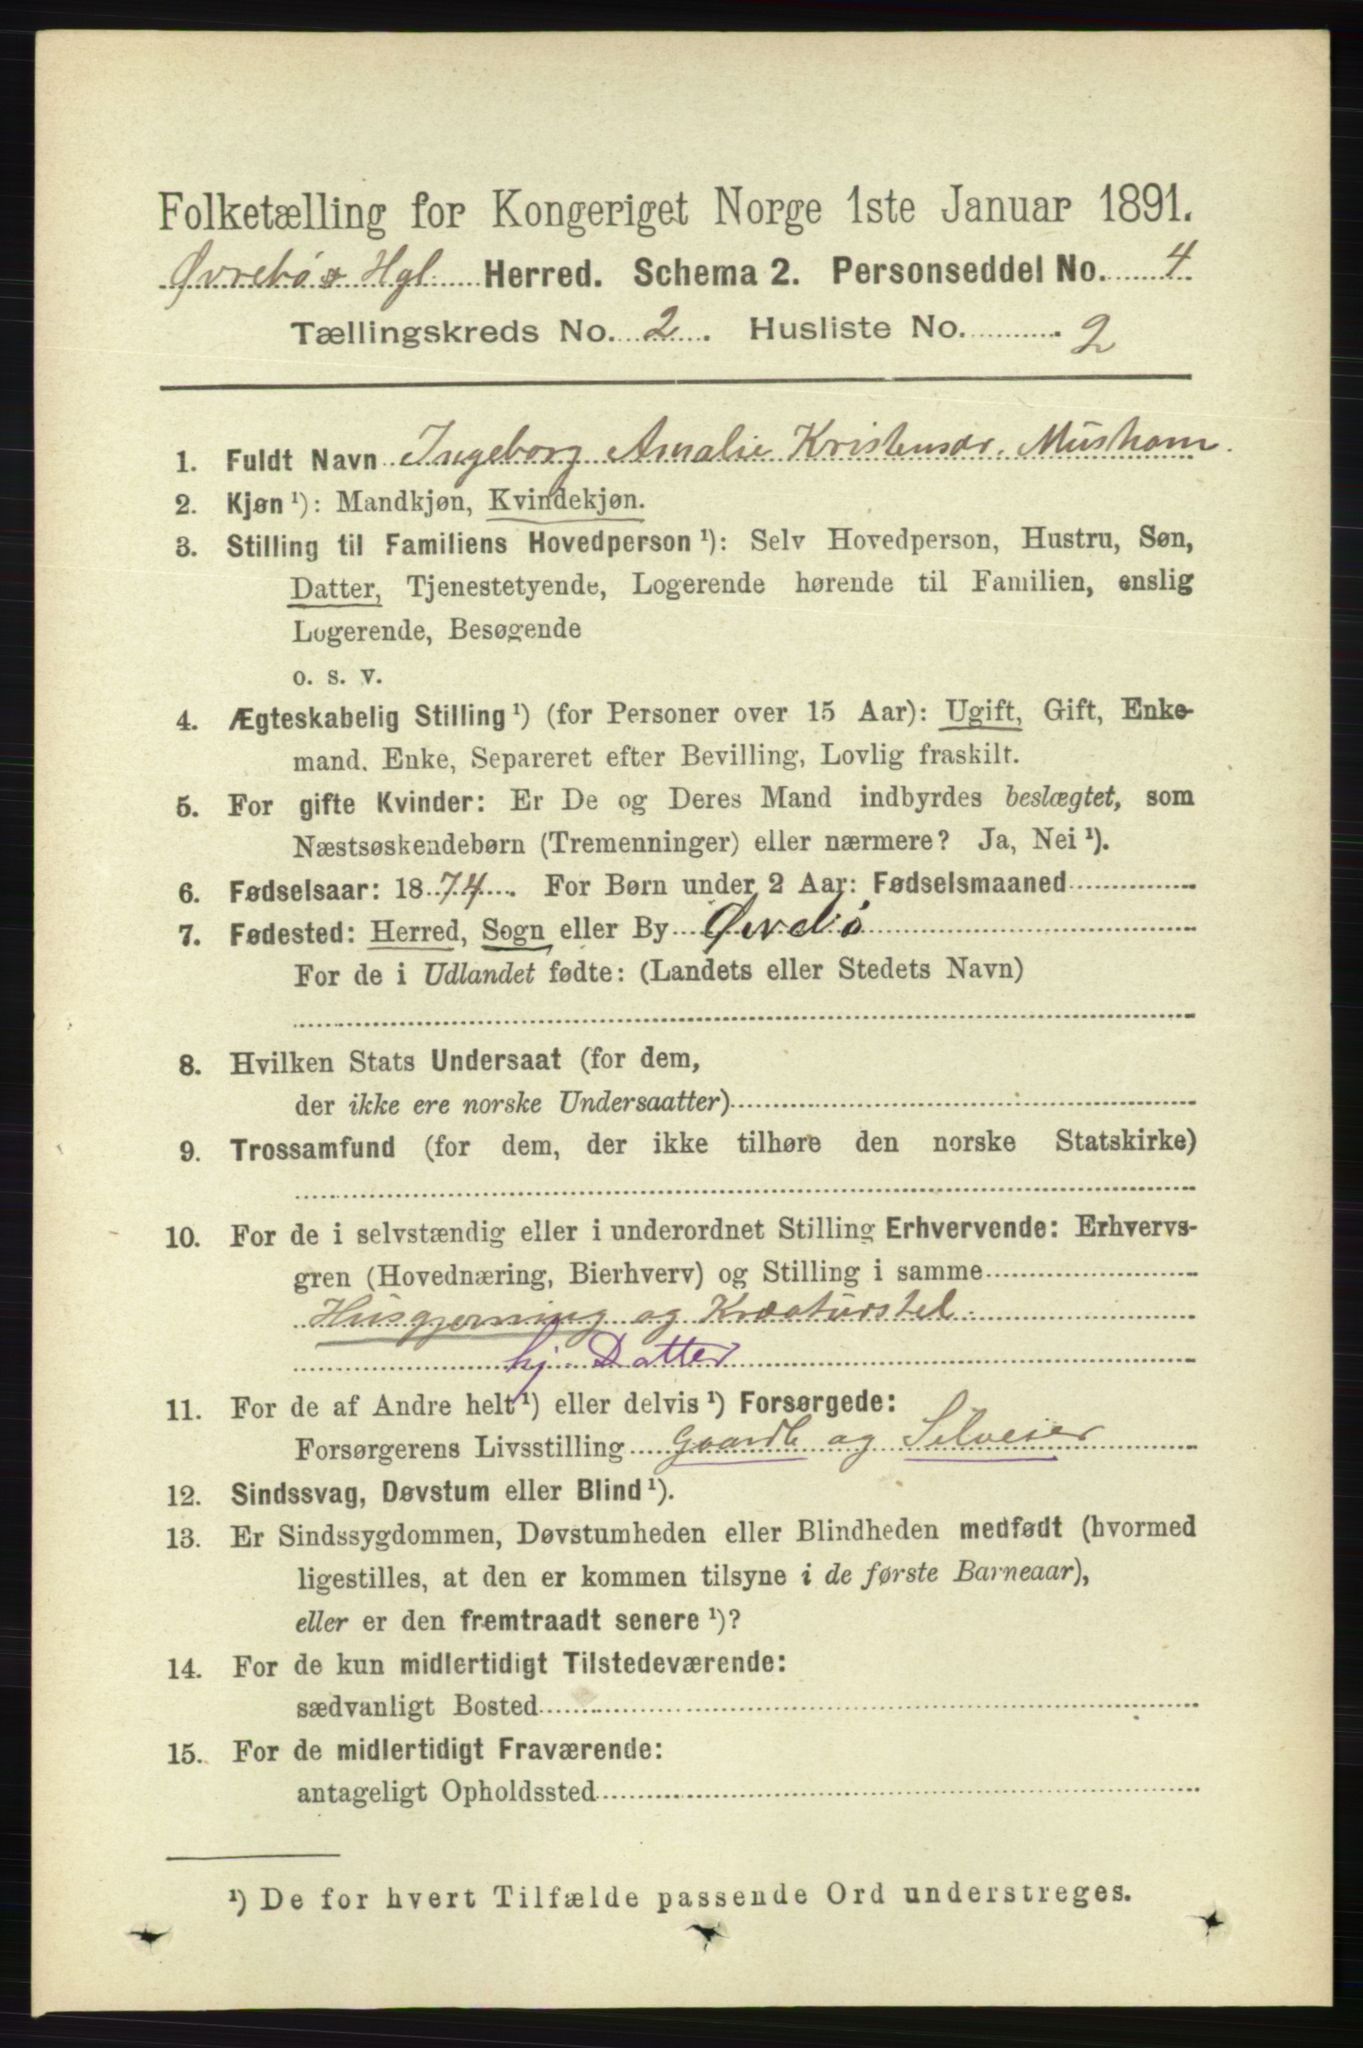 Folketælling for Kongeriget Norge 1ste Januar 1891.
Øvrebø & Hgl. Herred. Schema 2. Personseddel No. 4
Tællingskreds No. 2. Husliste No. 2
1. Fuldt Navn Ingeborg Amalie Kristensdr. Musham
2. Kjøn ¹): Mandkjøn, Kvindekjøn.
3. Stilling til Familiens Hovedperson ¹): Selv Hovedperson, Hustru, Søn,
Datter, Tjenestetyende, Logerende hørende til Familien, enslig
Logerende, Besøgende
o. s. v.
4. Ægteskabelig Stilling ¹) (for Personer over 15 Aar): Ugift, Gift, Enke-
mand. Enke, Separeret efter Bevilling, Lovlig fraskilt.
5. For gifte Kvinder: Er De og Deres Mand indbyrdes beslægtet, som
Næstsøskendebørn (Tremenninger) eller nærmere? Ja, Nei ¹).
6. Fødselsaar: 1874. For Børn under 2 Aar: Fødselsmaaned
7. Fødested: Herred, Sogn eller By Øvrebø
For de i Udlandet fødte: (Landets eller Stedets Navn)
8. Hvilken Stats Undersaat (for dem,
der ikke ere norske Undersaatter)
9. Trossamfund (for dem, der ikke tilhøre den norske Statskirke)
10. For de i selvstændig eller i underordnet Stilling Erhvervende: Erhvervs-
gren (Hovednæring, Bierhverv) og Stilling i samme
Husgjerning og Kreaturstel.
hj. Datter
11. For de af Andre helt ¹) eller delvis ¹) Forsørgede:
Forsørgerens Livsstilling Gaardb og Selveier
12. Sindssvag, Døvstum eller Blind ¹).
13. Er Sindssygdommen, Døvstumheden eller Blindheden medfødt (hvormed
ligestilles, at den er kommen tilsyne i de første Barneaar),
eller er den fremtraadt senere ¹)?
14. For de kun midlertidigt Tilstedeværende:
sædvanligt Bosted
15. For de midlertidigt Fraværende:
antageligt Opholdssted
¹) De for hvert Tilfælde passende Ord understreges.